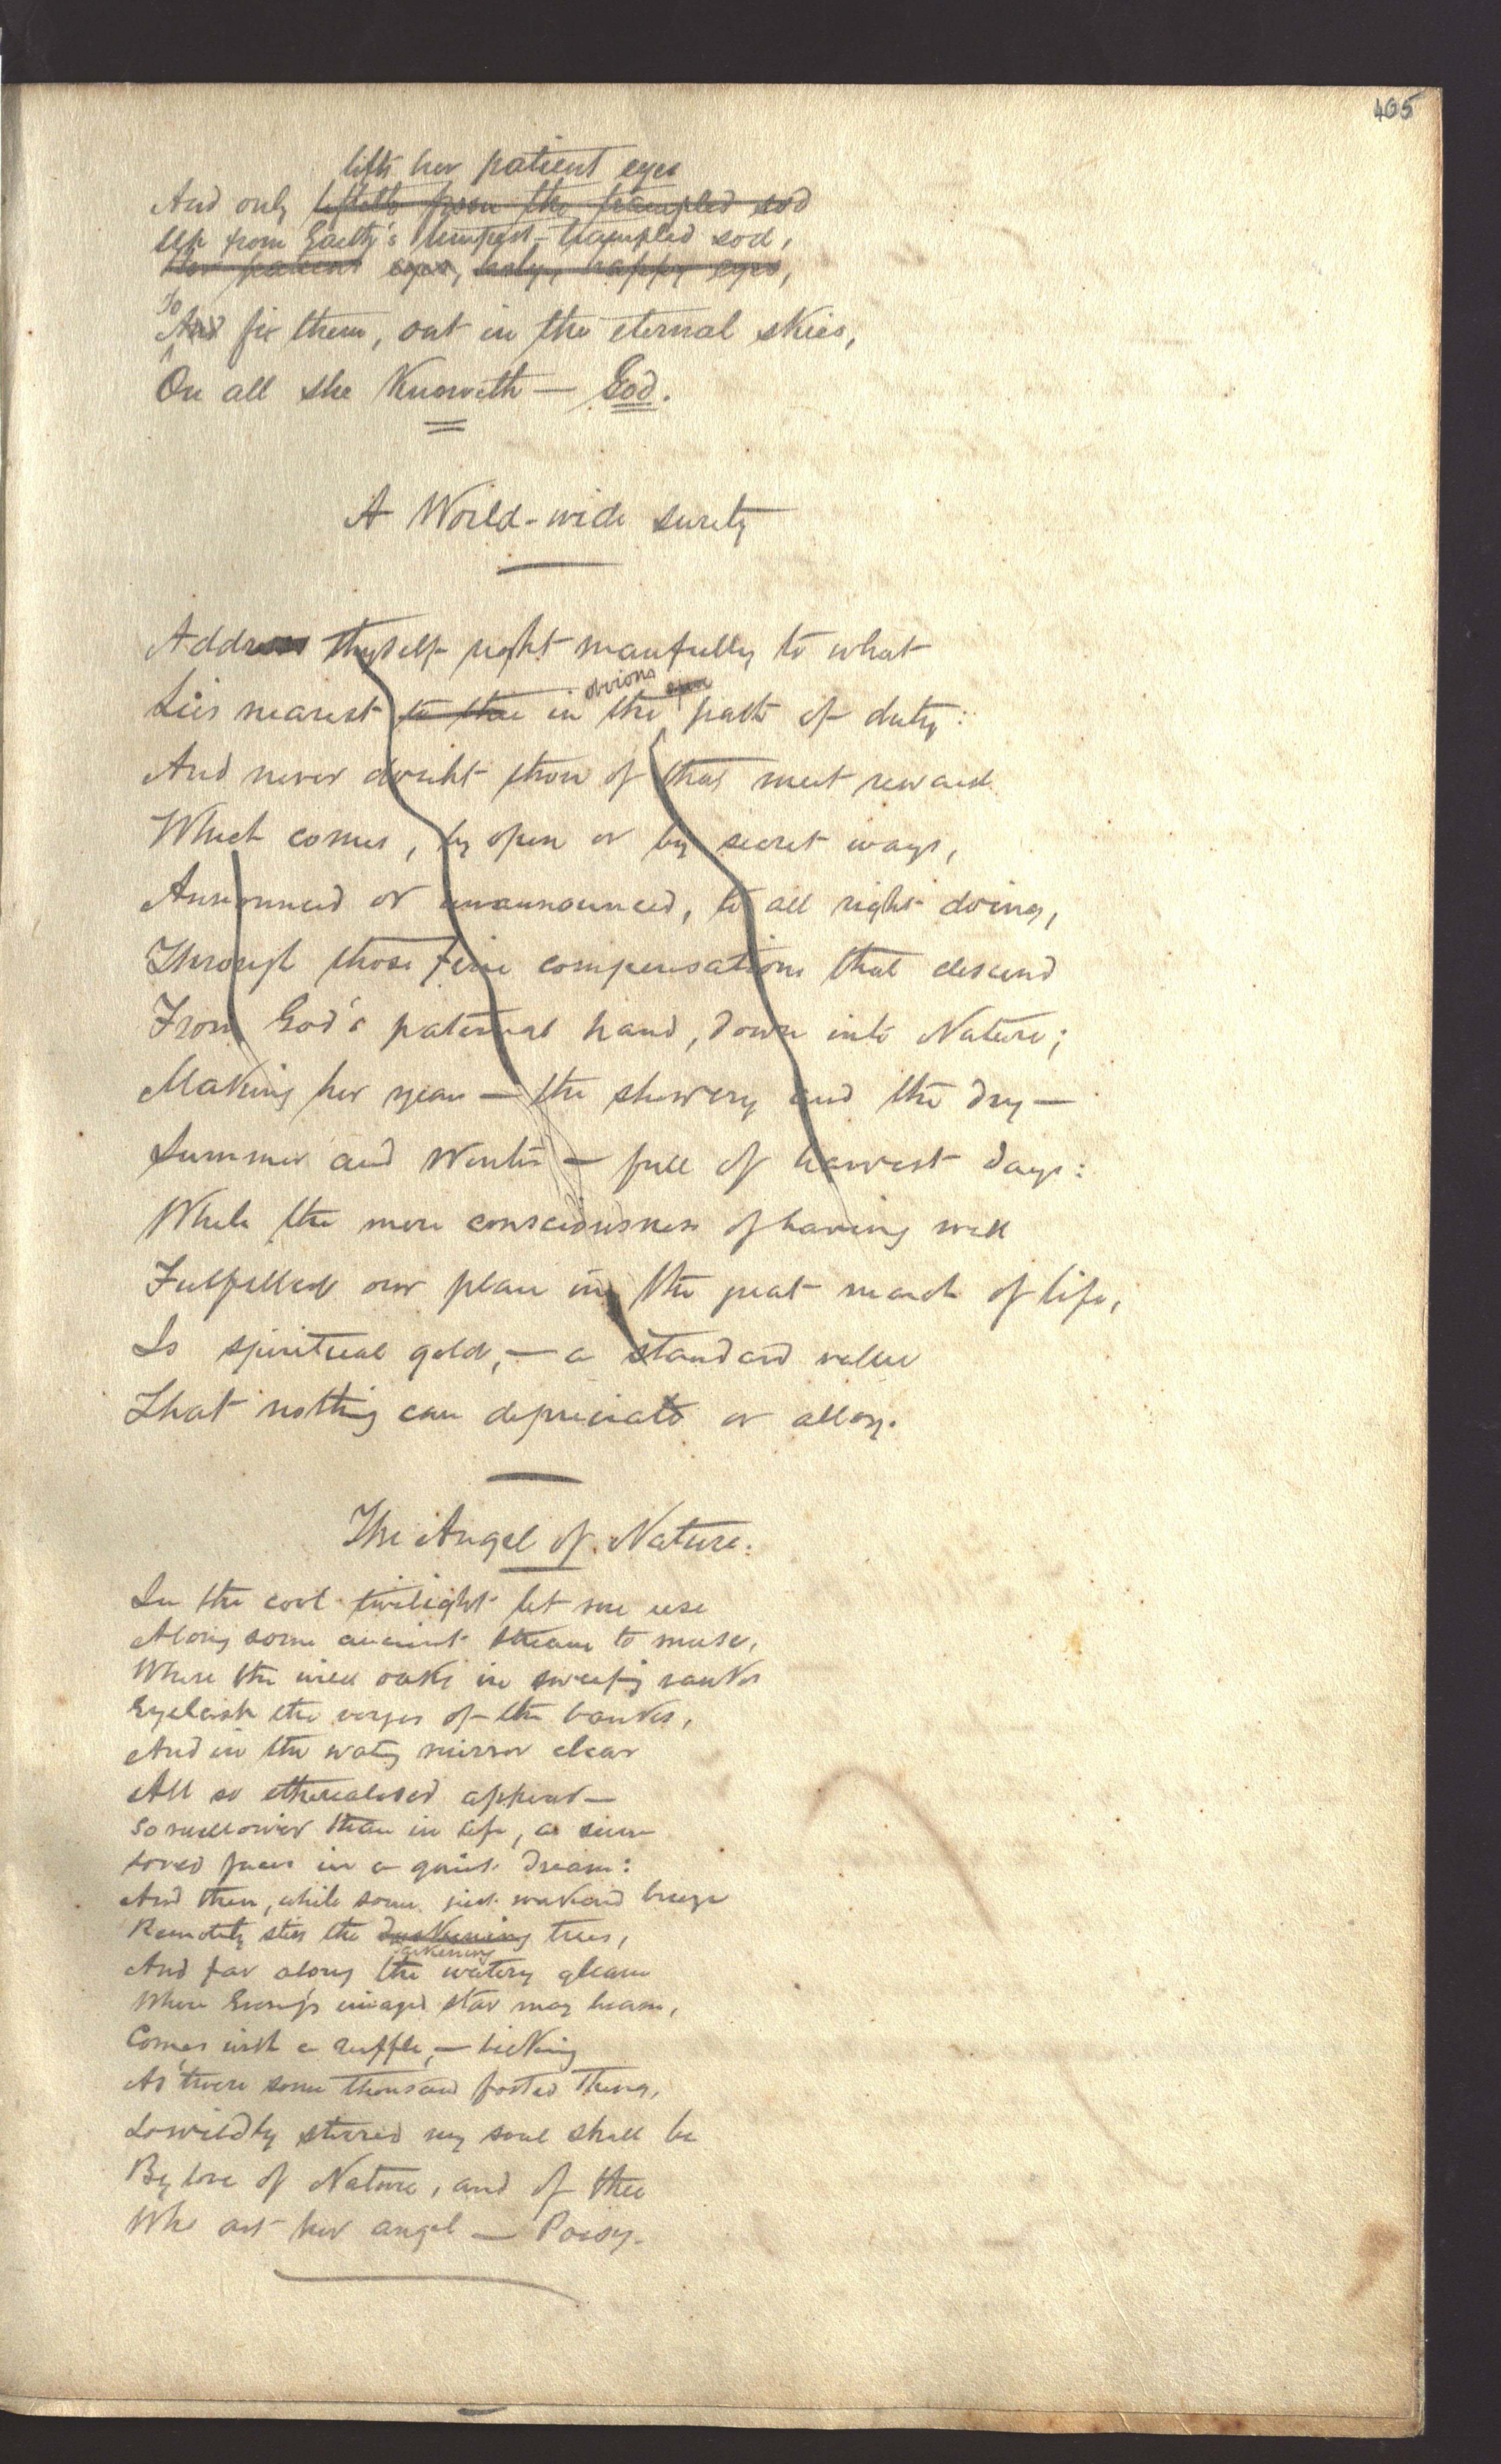 405
lifts her patient eyes
And only lifteth from the trampled sod
Up from Earth's tempest-trampled sod,
Her patient eyes, holy, happy eyes,
To
And fix them, out in the eternal skies,
On all she Knoweth — God.
A World-wide surety
Address thyself right manfully to what
obvious open
Lies nearest to thee in the path of duty:
And never doubt thou of that meet reward
Which comes, by open or by secret ways,
Announced or unannounced, to all right doing,
Through those fine compensations that descend
From God's paternal hand, down into Nature;
Making her year — the showery and the dry —
Summer and Winter — full of harvest days:
While the mere consciousness of having well
Fulfilled our place in the great march of life,
Is spiritual gold, — a standard value
That nothing can depreciate or alloy.
The Angel of Nature.
In the cool twilight let me use
Along some ancient stream to muse,
Where the wild oaks in sweeping ranks
Eyelash the verges of the banks,
And in the watery mirror clear
All so etherealised appear —
So mellower than in life, as seem
Loved faces in a quiet dream:
And then, while some just wakened breeze
Remotely stirs the darkening trees,
darkening
And far along the watery gleam
Where Evening's imaged star may beam,
Comes with a ruffle, — licking
As 'twere some thousand footed Thing,
So wildly stirred my soul shall be
By love of Nature, and of thee
Who art her angel — Poesy.